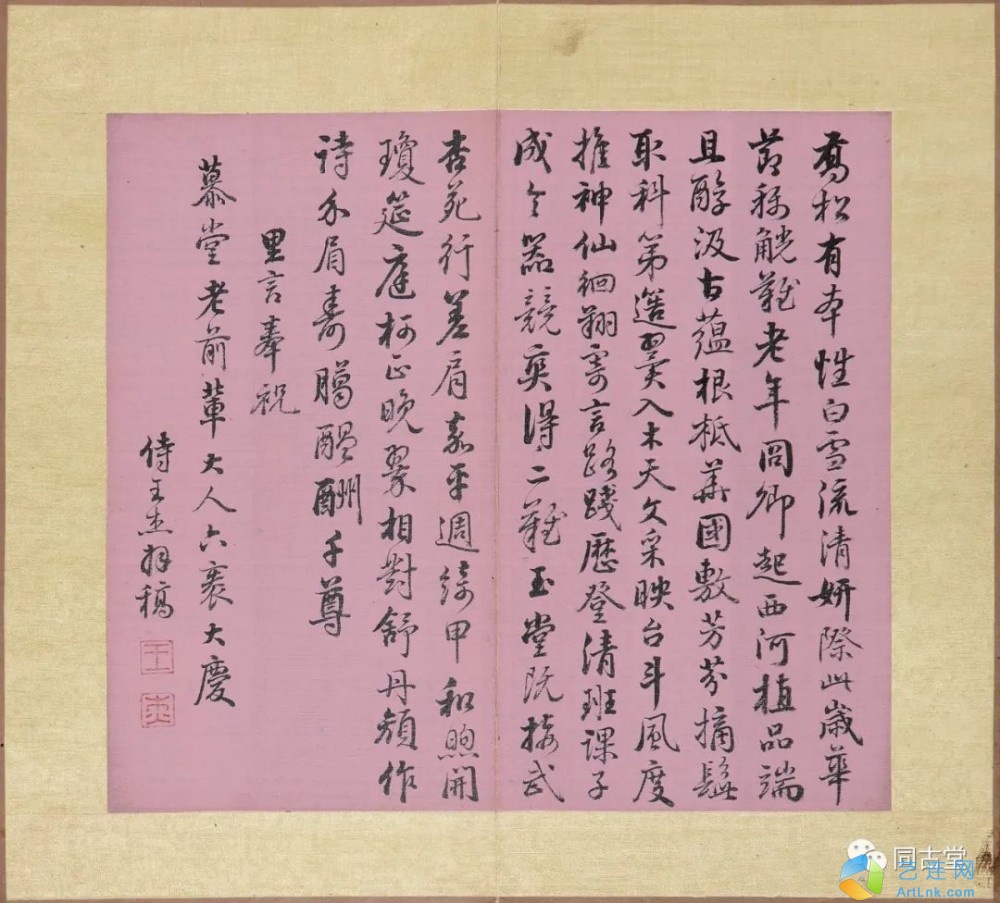 喬松有本性白雪流清妍際此歲華
節稱觥難老年冏卿起西河植品端
且醇汲古蘊根柢華國敷芳芬摘髭
取科第選入木天文采映台斗風度
推神仙徊翔寄言路踐歷登清班課子
成令器競爽得二難玉堂既接武
杏苑行差肩嘉平週綺甲和煦開
瓊筵庭柯正晚翠相對舒丹顏作
詩介眉壽臈醞酬千尊
里言奉祝
慕堂老前輩大人六袠大慶
侍王杰拜稿
王
杰
同古堂
艺连网
ArtLnk.com